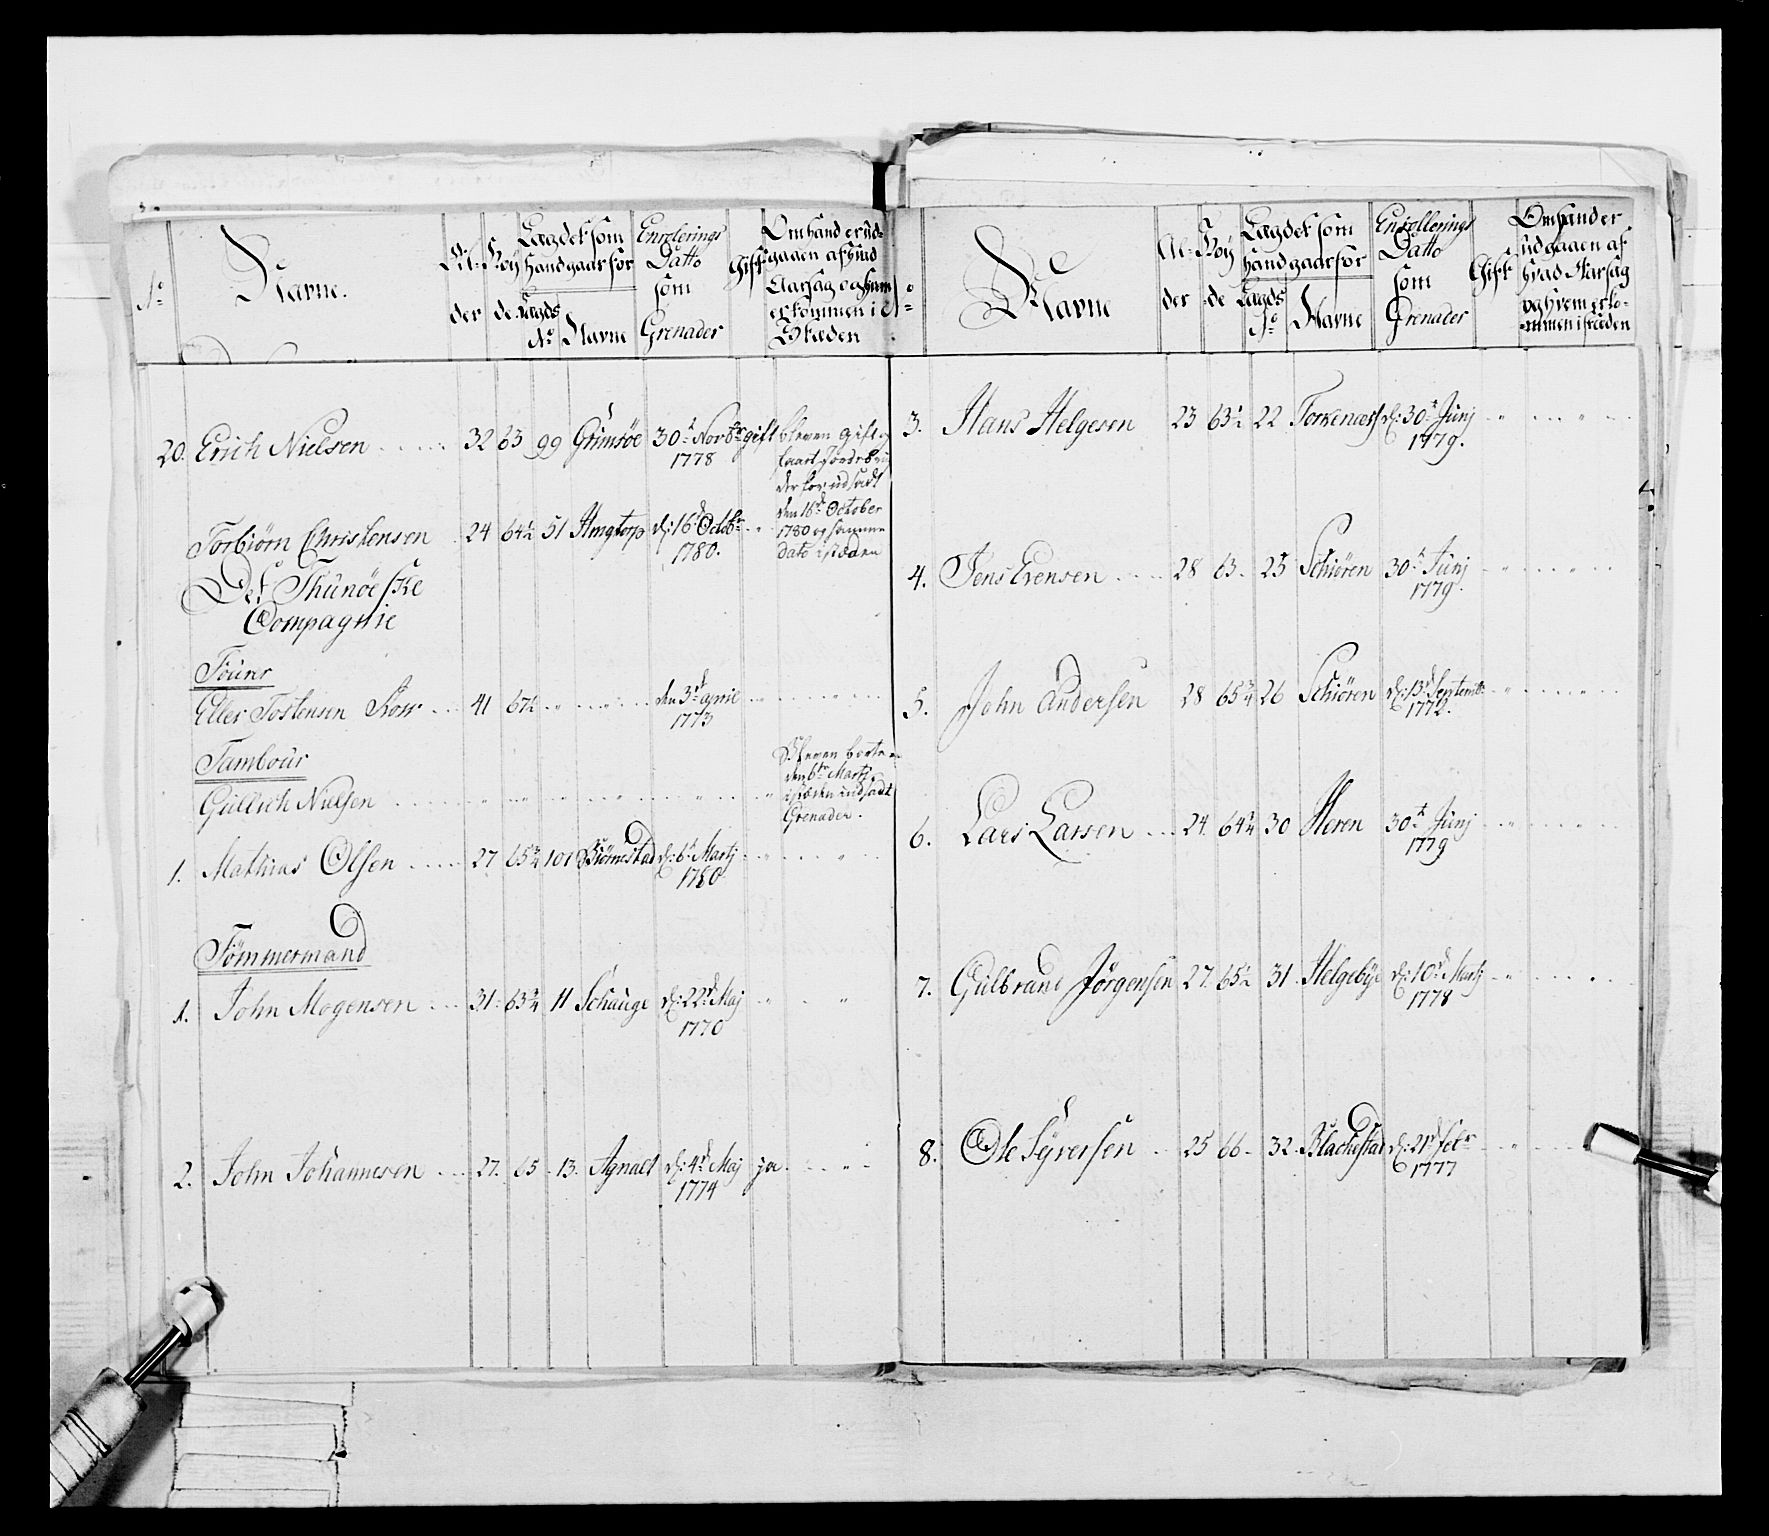 No
Navne.
Al-
der
Höy
de
Lagdet som
hand gaar for
Lagds
No Navne
Enrolerings
Datto
som
Grenader
Gift
Om hand er ud-
gaaen af hvad
Aarsag og hvem
er kommen i
Stæden
20. Erich Nielsen 32 63 99 Grimsöe 30te Novbr gift
1778
bleven gift og
faaet
derfor udsadt
den 16de October
1780 og samme
dato i stæden
Torbiörn Christensen 24 64½ 51 d: 16de Octobr
1780.
Det Thunöeske
Compagnie
Eller Tostensen 41 67½ den 3de April
1773
Tambour
Gullich Nielsen
Bleven
den 6te Martj
i stæden indsadt
Grenader.
1. Mathias Olsen 27 65¾ 101 Biörnestad d: 6te Martj
1780
Tömmermænd
1. John Mogensen 31 63¾ 11 Schauge d: 22de Maj
1770
2. John Johannesen 27. 65 13. Agnalt d: 4de Maj ja
1774
No
Navne
Al-
der
Höy
de
Lagdet som
hand gaar for
Lagds
No Navne
Enrollerings
Datto
som
Grenader
Gift
Om hand er
udgaaen af
hvad Aarsag
og hvem er ko-
mmen i stæden
3. Hans Helgesen 23 63½ 22 Torkenæs d: 30te Junj
1779.
4. Jens Evensen 28 63 25 Schiören 30te Junj
1779.
5. John Andersen 28 65¾ 26 Schiören d: 13de Septembr
1772.
6. Lars Larsen 24. 64¾ 30 Heren 30te Junj
1779
7. Gulbrand Jörgensen 27. 65½ 31 Helgebye d: 10de Martj
1778
8. Ole Syversen 25 66 32. Blackestad d: 21de Febr
1777